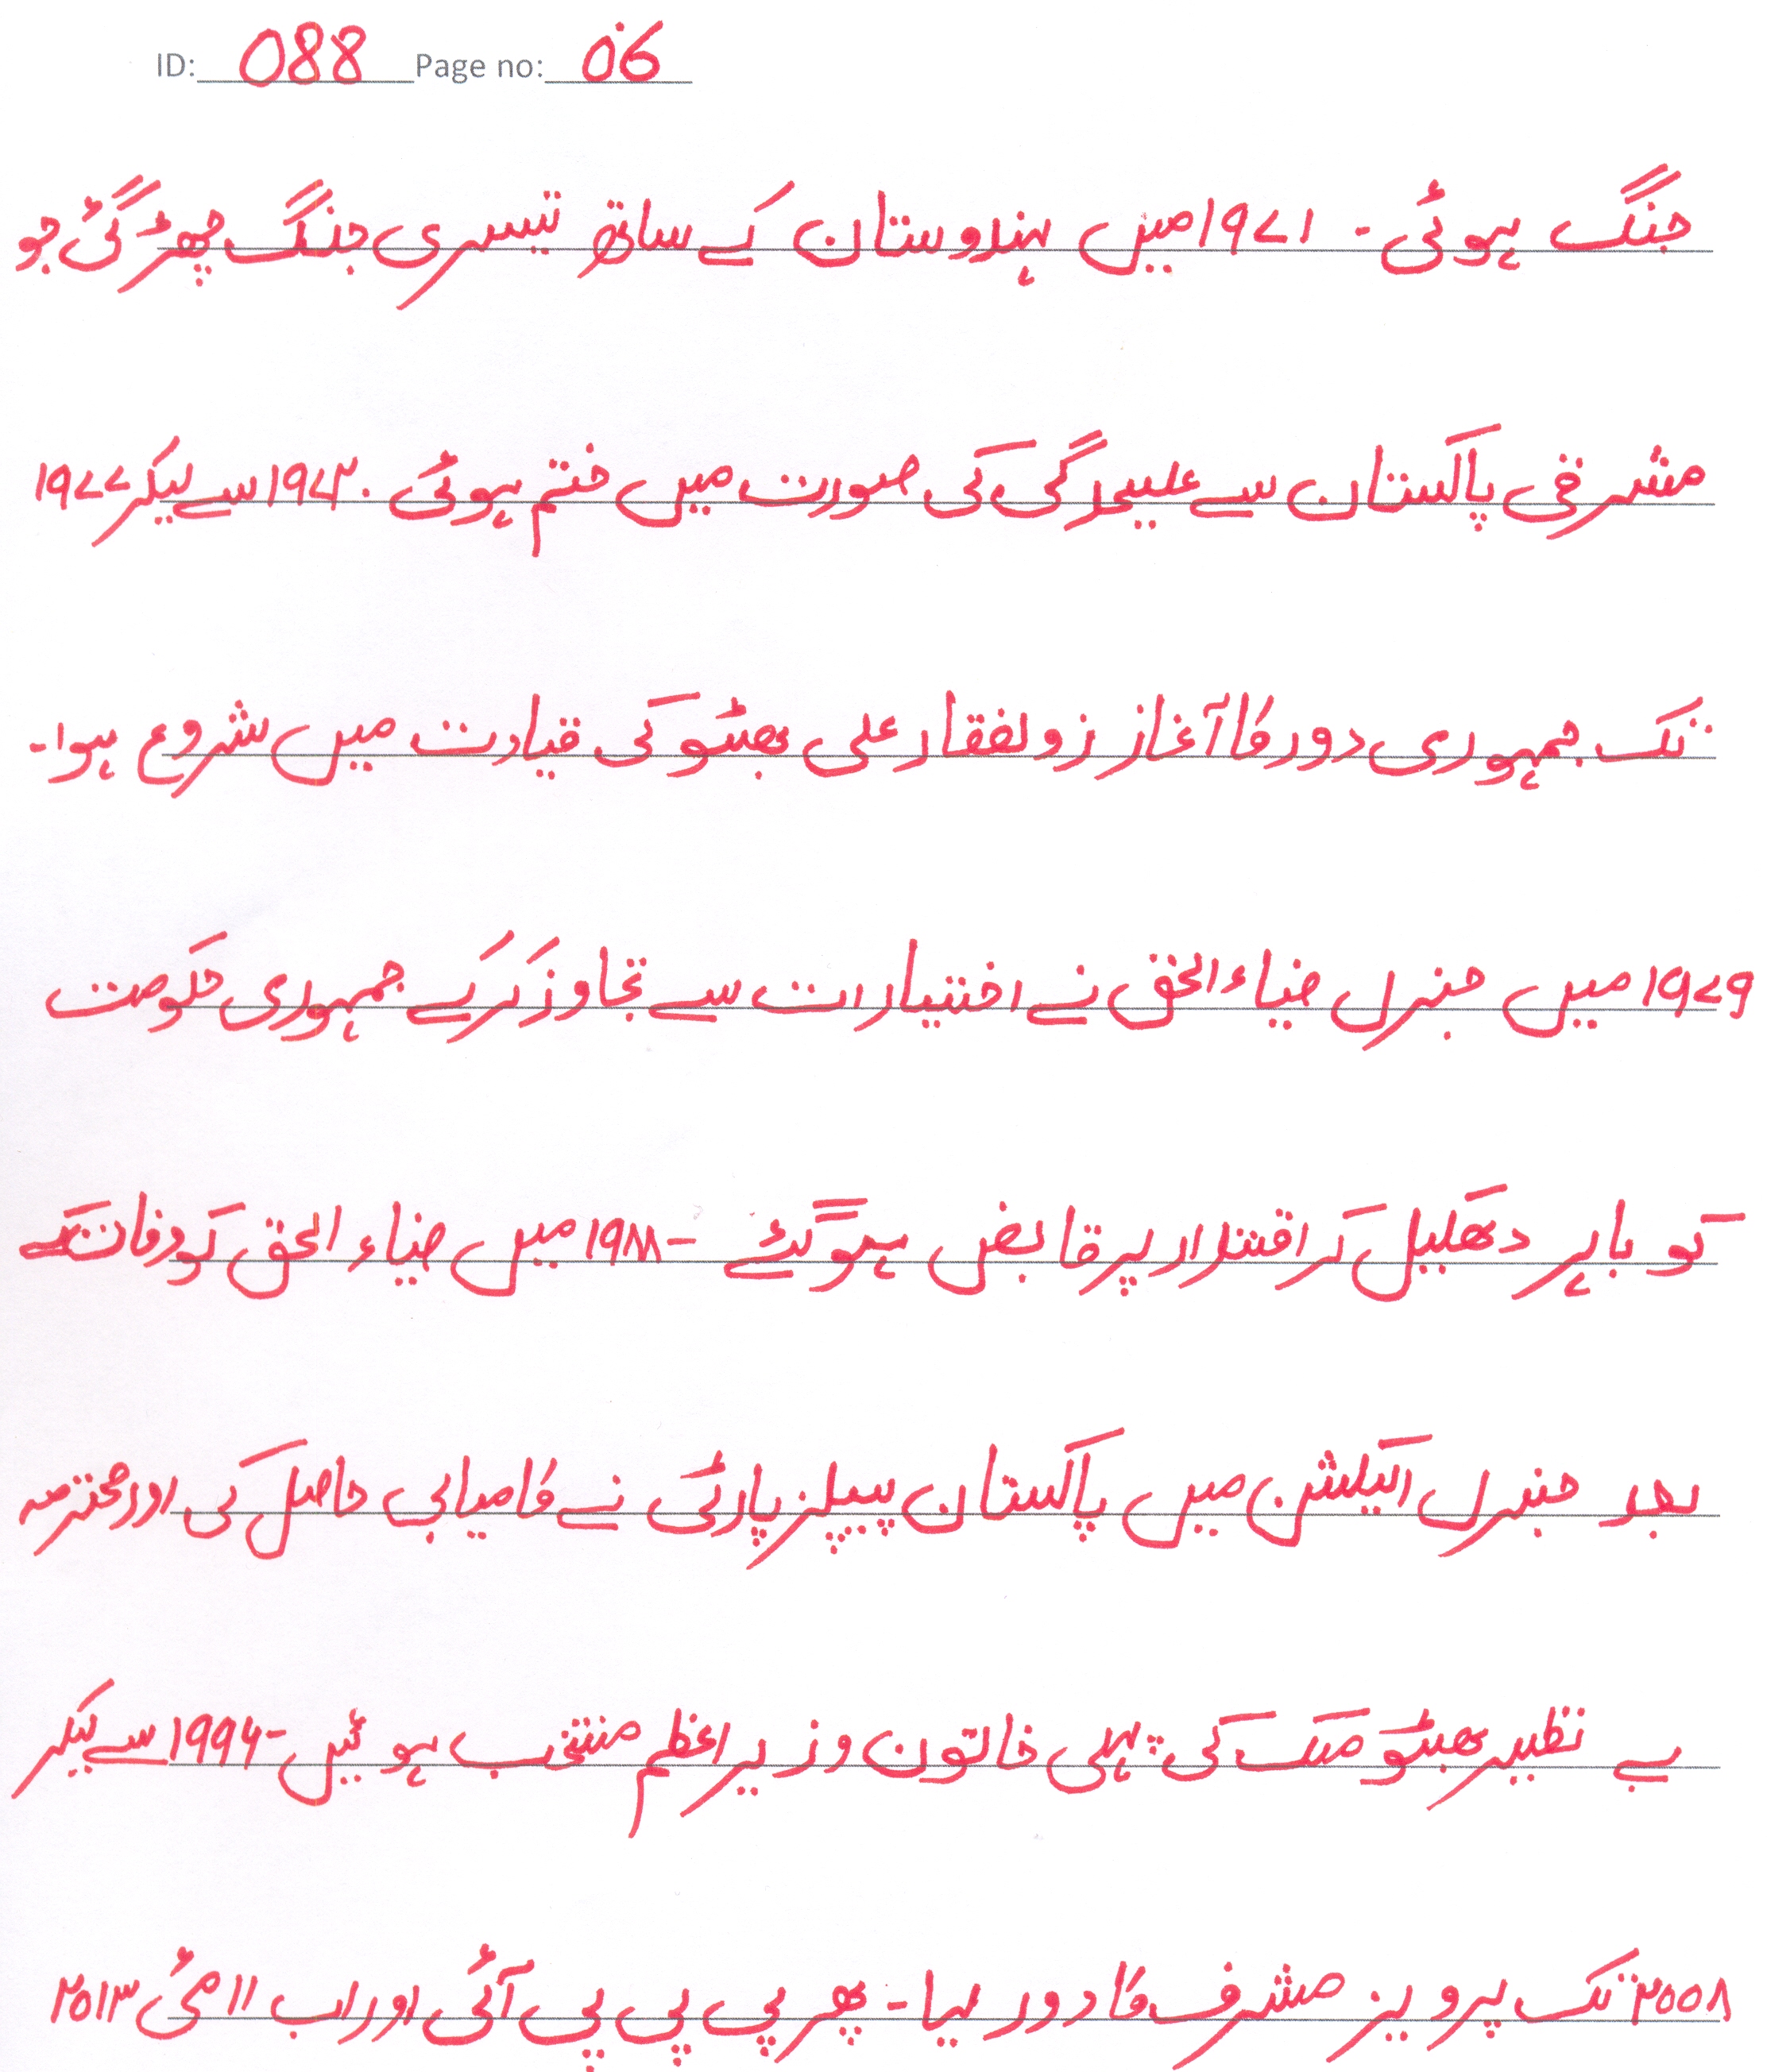 ID: 088 Page no: 06
جنگ ہوئی۔ ۱۹۷۱ میں ہندوستان کے ساتھ تیسری جنگ چھڑ گئی جو
مشرقی پاکستان سے علیحدگی کی صورت میں ختم ہوئی۔ ۱۹۷۲ سے لیکر ۱۹۷۷
تک جمہوری دور کا آغاز زولفقار علی بھٹو کی قیادت میں شروع ہوا۔
۱۹۷۹ میں جنرل ضیاء الحق نے اختیارات سے تجاوز کر کے جمہوری حکومت
کو باہر دھکیل کر اقتدار پر قابض ہوگئے ۔ ۱۹۸۸ میں ضیاء الحق کو وفات کے
بعد جنرل الیکشن میں پاکستان پیپلز پارٹی نے کامیابی حاصل کی اور محترمہ
بے نظیر بھٹو ملک کی پہلی خاتون وزیر اعظم منتخب ہوئیں ۔ ۱۹۹۶ سے لیکر
۲۰۰۸ تک پرویز مشرف کا دور رہا ۔ پھر پی پی پی آئی اور اب ۱۱ مئی ۲۰۱۳